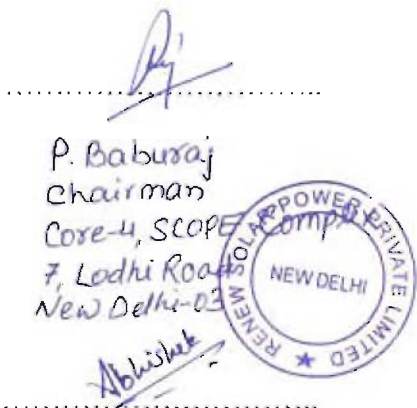 P. Baburaj
Chairman
Core-4, SCOPE Complex
7, Lodhi Road
New Delhi-03
RENEW SOLAR POWER PRIVATE LIMITED
NEW DELHI
Abhishek